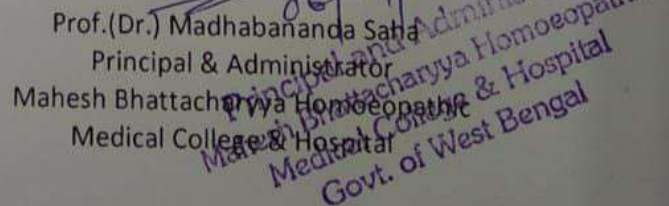 Prof.(Dr.) Madhabananda Saha
Principal & Administrator
Mahesh Bhattacharyya Homoeopathic
Medical College & Hospital
Principal and
Mahesh Bhattacharyya Homoeopath
Medical College & Hospital
Govt. of West Bengal